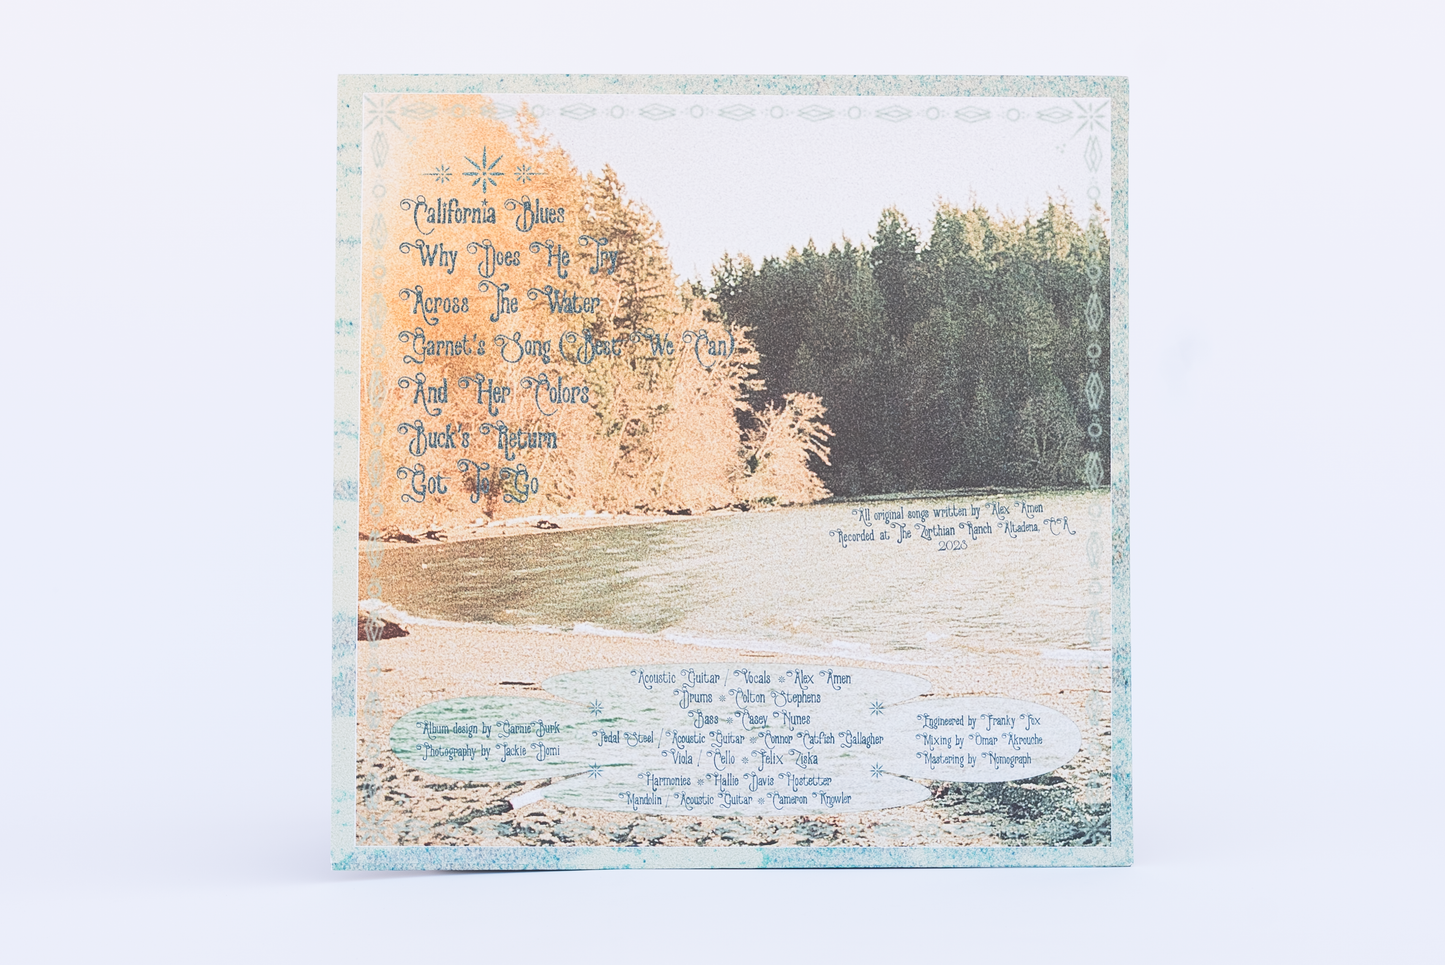 California Blues
Why Does He Try
Across The Water
Garnet's Song (Best We Can)
And Her Colors
Buck's Return
Got To Go
All original songs written by Alex Amen
Recorded at The Zorthian Ranch Altadena, CA
2023
Acoustic Guitar / Vocals * Alex Amen
Drums * Colton Stephens
Bass * Casey Nunes
Pedal Steel / Acoustic Guitar * Connor "Catfish" Gallagher
Viola / Cello * Felix Ziska
Harmonies * Hallie Davis Hostetter
Mandolin / Acoustic Guitar * Cameron Knowler
Album design by Garnie Burk
Photography by Jackie Domi
Engineered by Franky Fox
Mixing by Omar Akrouche
Mastering by Nomograph